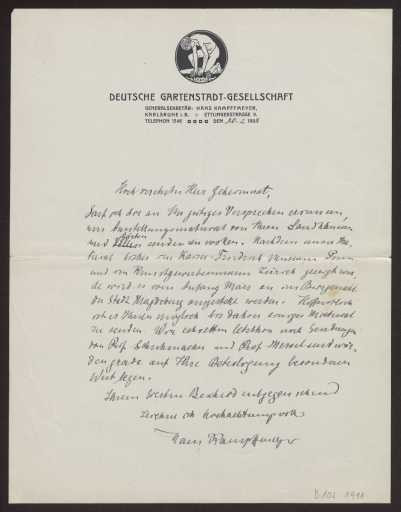 DEUTSCHE GARTENSTADT-GESELLSCHAFT
GENERALSEKRETÄR: HANS KAMPFFMEYER,
KARLSRUHE i. B. ETTLINGERSTRASSE
TELEPHON 1346 DEN
Hochverehrter Herr Geheimrat,
Darf ich Sie an Ihr gütiges Versprechen erinnern,
uns Ausstellungsmaterial von Ihren Landhäusern
und Gärten senden zu wollen. Nachdem unser Ma-
terial bisher im Kaiser Friedrich Museum
und im Kunstgewerbemuseum Zürich gezeigt wur-
de wird es von Anfang März an im
der Stadt Magdeburg ausgestellt werden. Hoffentlich
ist es Ihnen möglich bis dahin einiges Material
zu senden. Wir erhielten letzthin noch Sendungen
von Prof. und Prof. Metzendorf wür-
den grade auf Ihre Beteiligung besonderen
Wert legen.
Ihrem werten Bescheid entgegensehend
zeichne ich hochachtungsvoll
Hans Kampffmeyer